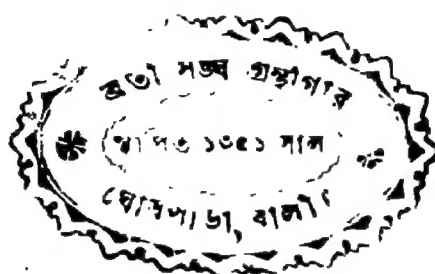 ব্রতী সঙ্ঘ গ্রন্থাগার
স্থাপিত ১৩৫১ সাল
ঘোষপাড়া, বালী